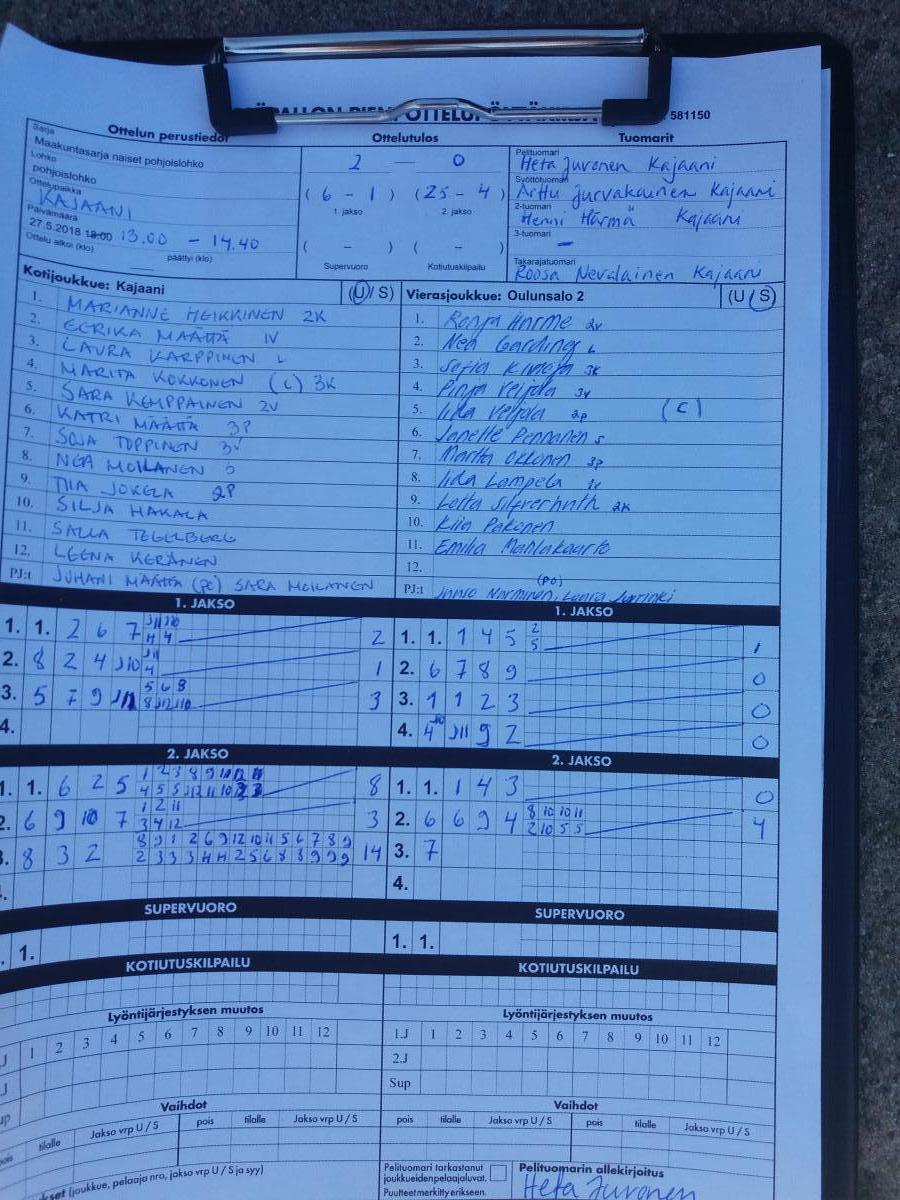 OTTELU 581150
Ottelun perustiedot
Ottelutulos
Tuomarit
Sarja
Maakuntasarja naiset pohjoislohko
Lohko
pohjoislohko
Ottelupaikka
KAJAANI
Päivämäärä
27.5.2018 18:00 13.00 - 14.40
Ottelu alkoi (klo) päättyi (klo)
2 — 0
( 6 - 1 ) ( 25 - 4 )
1. jakso 2. jakso
( - ) ( - )
Supervuoro Kotiutuskilpailu
Pelituomari
Heta Juronen Kajaani
Syöttötuomari
Arttu Jurvakainen Kajaani
2-tuomari
Henni Härmä Kajaani
3-tuomari
-
Takarajatuomari
Roosa Nevalainen Kajaani
Kotijoukkue: Kajaani (U / S)
1. MARIANNE HEIKKINEN 2K
2. EERIKA MÄÄTTÄ 1V
3. LAURA KARPPINEN L
4. MARITA KOKKONEN (C) 3K
5. SARA KEMPPAINEN 2V
6. KATRI MÄÄTTÄ 3P
7. SOJA TOPPINEN 3V
8. NEA MOILANEN S
9. TIIA JOKELA 2P
10. SILJA HAKALA
11. SALLA TEGELBERG
12. LEENA KERÄNEN
PJ:t JUHANI MÄÄTTÄ (PO) SARA MOILANEN
Vierasjoukkue: Oulunsalo 2 (U / S)
1. Ronja Harme 2v
2. Nea Garding L
3. Sofia 3K
4. Pinja Veijola 3v
5. Iida Veijola 2p (C)
6. Janette Pennanen s
7. Martta Okkonen 3p
8. Iida Lampela 1v
9. Lotta Silfverhuth 2K
10. Kiia Pakonen
11. Emilia
12.
PJ:t Norminen, Laura (PO)
1. JAKSO
1. 1. 2 6 7 J11 J10 2
4 4
2. 8 2 4 J10 J11 1
4
3. 5 7 9 J11 5 6 8 3
8 J12 J10
4.
1. JAKSO
1. 1. 1 4 5 2 1
5
2. 6 7 8 9 0
3. 1 1 2 3 0
4. 4 J10 J11 9 2 0
2. JAKSO
1. 1. 6 2 5 1 2 3 8 9 10 12 11 8
4 5 5 12 11 10 2 3
2. 6 9 10 7 1 2 11 3
3 4 12
3. 8 3 2 8 9 1 2 6 9 12 10 11 5 6 7 8 9 14
2 3 3 3 4 4 2 5 6 8 8 9 9 9
2. JAKSO
1. 1. 1 4 3 0
2. 6 6 9 4 8 10 10 11 4
2 10 5 5
3. 7
4.
SUPERVUORO
1.
SUPERVUORO
1. 1.
KOTIUTUSKILPAILU
KOTIUTUSKILPAILU
Lyöntijärjestyksen muutos
J 1 2 3 4 5 6 7 8 9 10 11 12
J
up
Lyöntijärjestyksen muutos
1.J 1 2 3 4 5 6 7 8 9 10 11 12
2.J
Sup
Vaihdot
pois tilalle Jakso vrp U / S pois tilalle Jakso vrp U / S
Vaihdot
pois tilalle Jakso vrp U / S pois tilalle Jakso vrp U / S
(joukkue, pelaaja nro, jakso vrp U / S ja syy)
Pelituomari tarkastanut
joukkueiden pelaajaluvat.
Puutteet merkitty erikseen.
Pelituomarin allekirjoitus
Heta Juronen